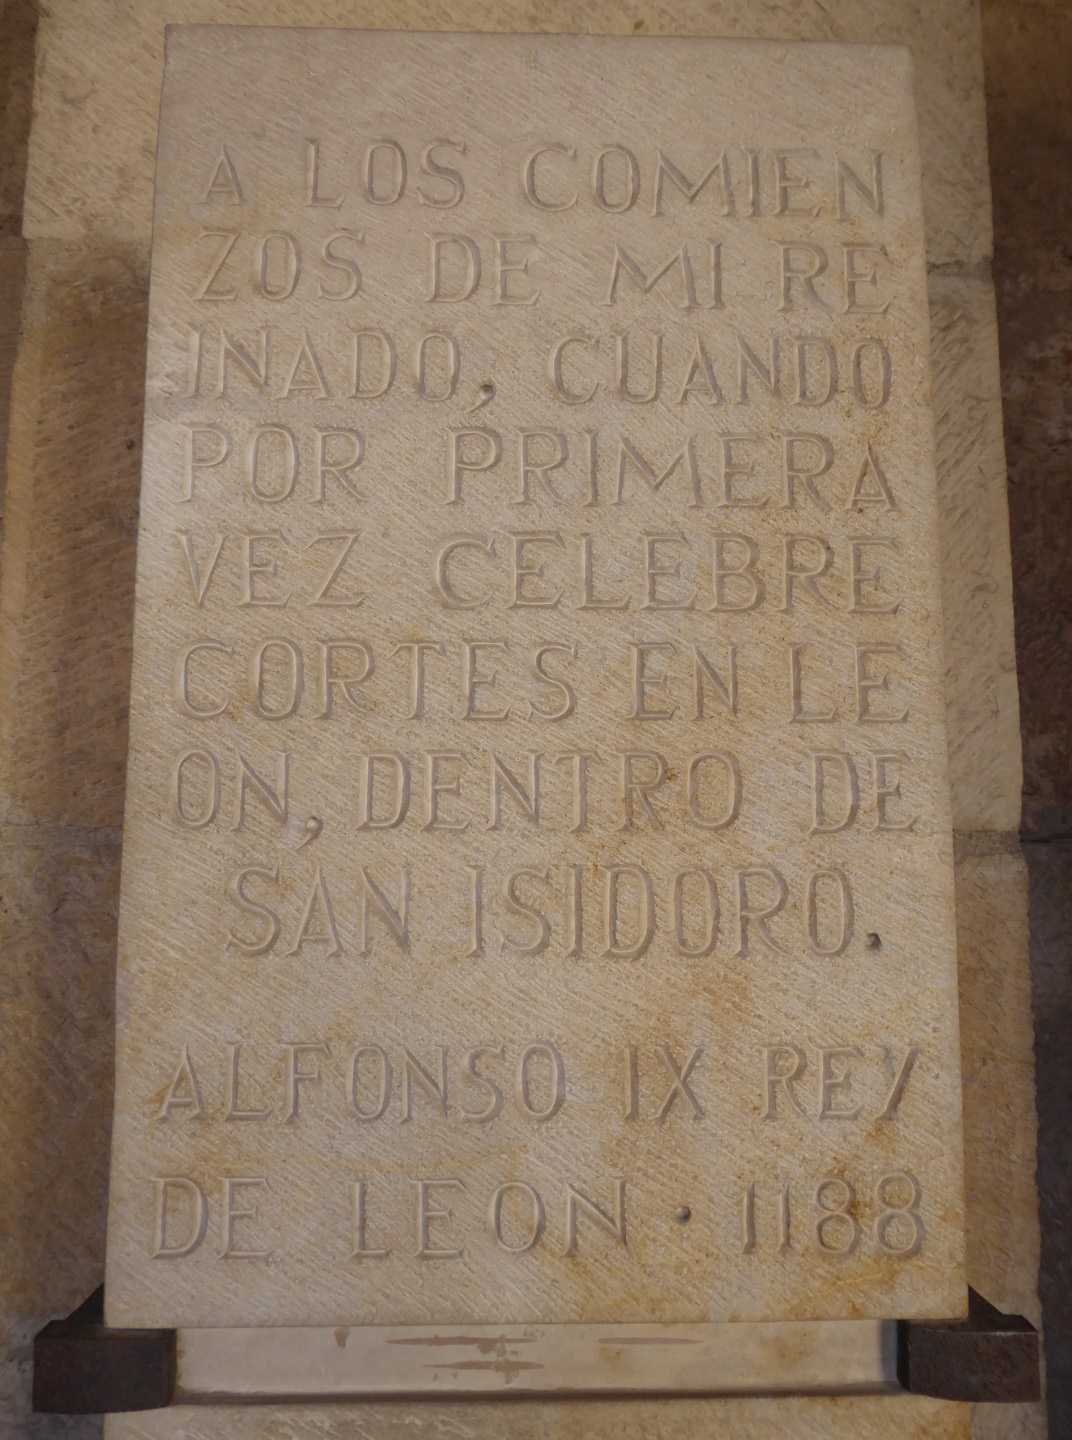 A LOS COMIEN
ZOS DE MI RE
INADO, CUANDO
POR PRIMERA
VEZ CELEBRE
CORTES EN LE
ON, DENTRO DE
SAN ISIDORO.
ALFONSO IX REY
DE LEON · 1188